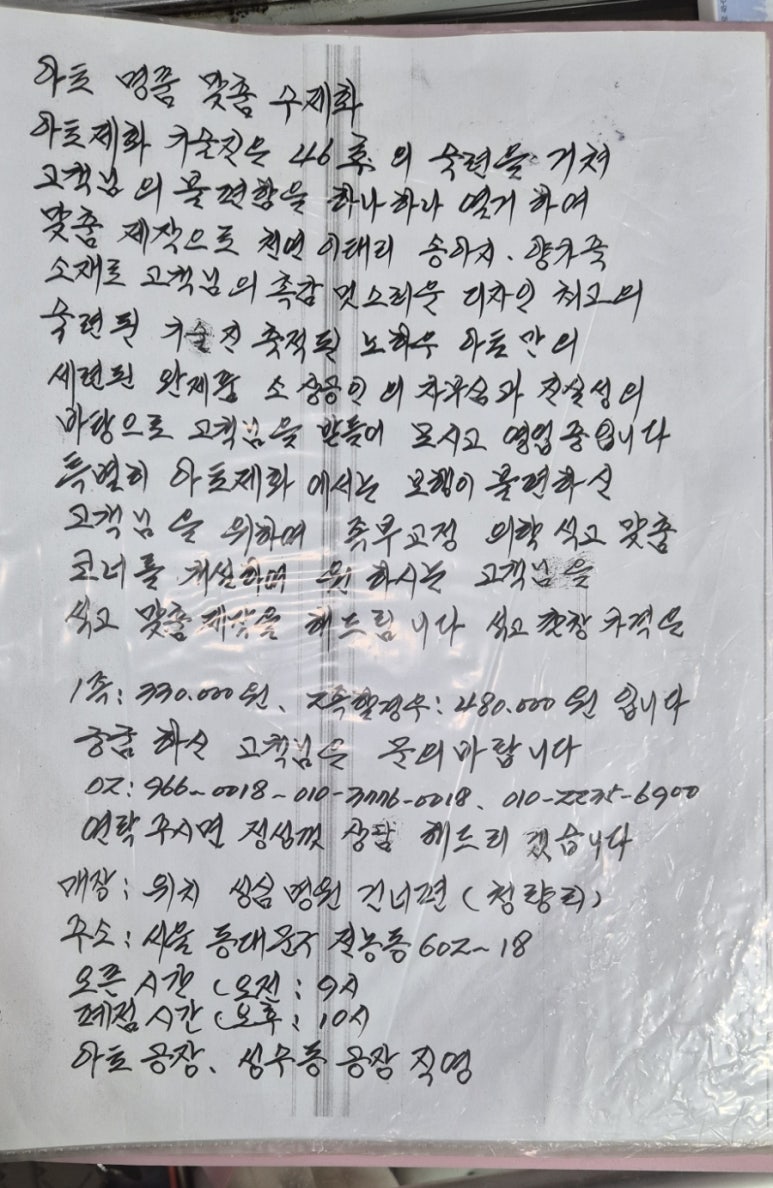 아토 명품 맞춤 수제화
아토제화 기술진은 46年의 숙련을 거쳐
고객님의 불편함을 하나하나 엮거하여
맞춤 제작으로 천연 이태리 송아지. 양가죽
소재로 고객님의 촉감 멋스러운 디자인 최고의
숙련된 기술진 축적된 노하우 아토만의
세련된 완제품 소상공인의 자부심과 진실성의
바탕으로 고객님을 받들어 모시고 영업중입니다
특별히 아토제화에서는 보행이 불편하신
고객님을 위하여 족부교정 의학 석고 맞춤
코너를 개설하며 원하시는 고객님을
석고 맞춤제작을 해드립니다 석고 깔창 가격은
1족: 330.000원. 2족할경우: 480.000원 입니다
궁금하신 고객님은 문의바랍니다
02: 966~0018~010-3776-0018. 010-2235-6900
연락주시면 정성껏 상담 해드리겠습니다
매장: 위치 성심병원 건너편 (청량리)
주소: 서울 동대문구 전농동 602~18
오픈시간 (오전: 9시
폐점시간 (오후: 10시
아토 공장. 성수동 공장 직영